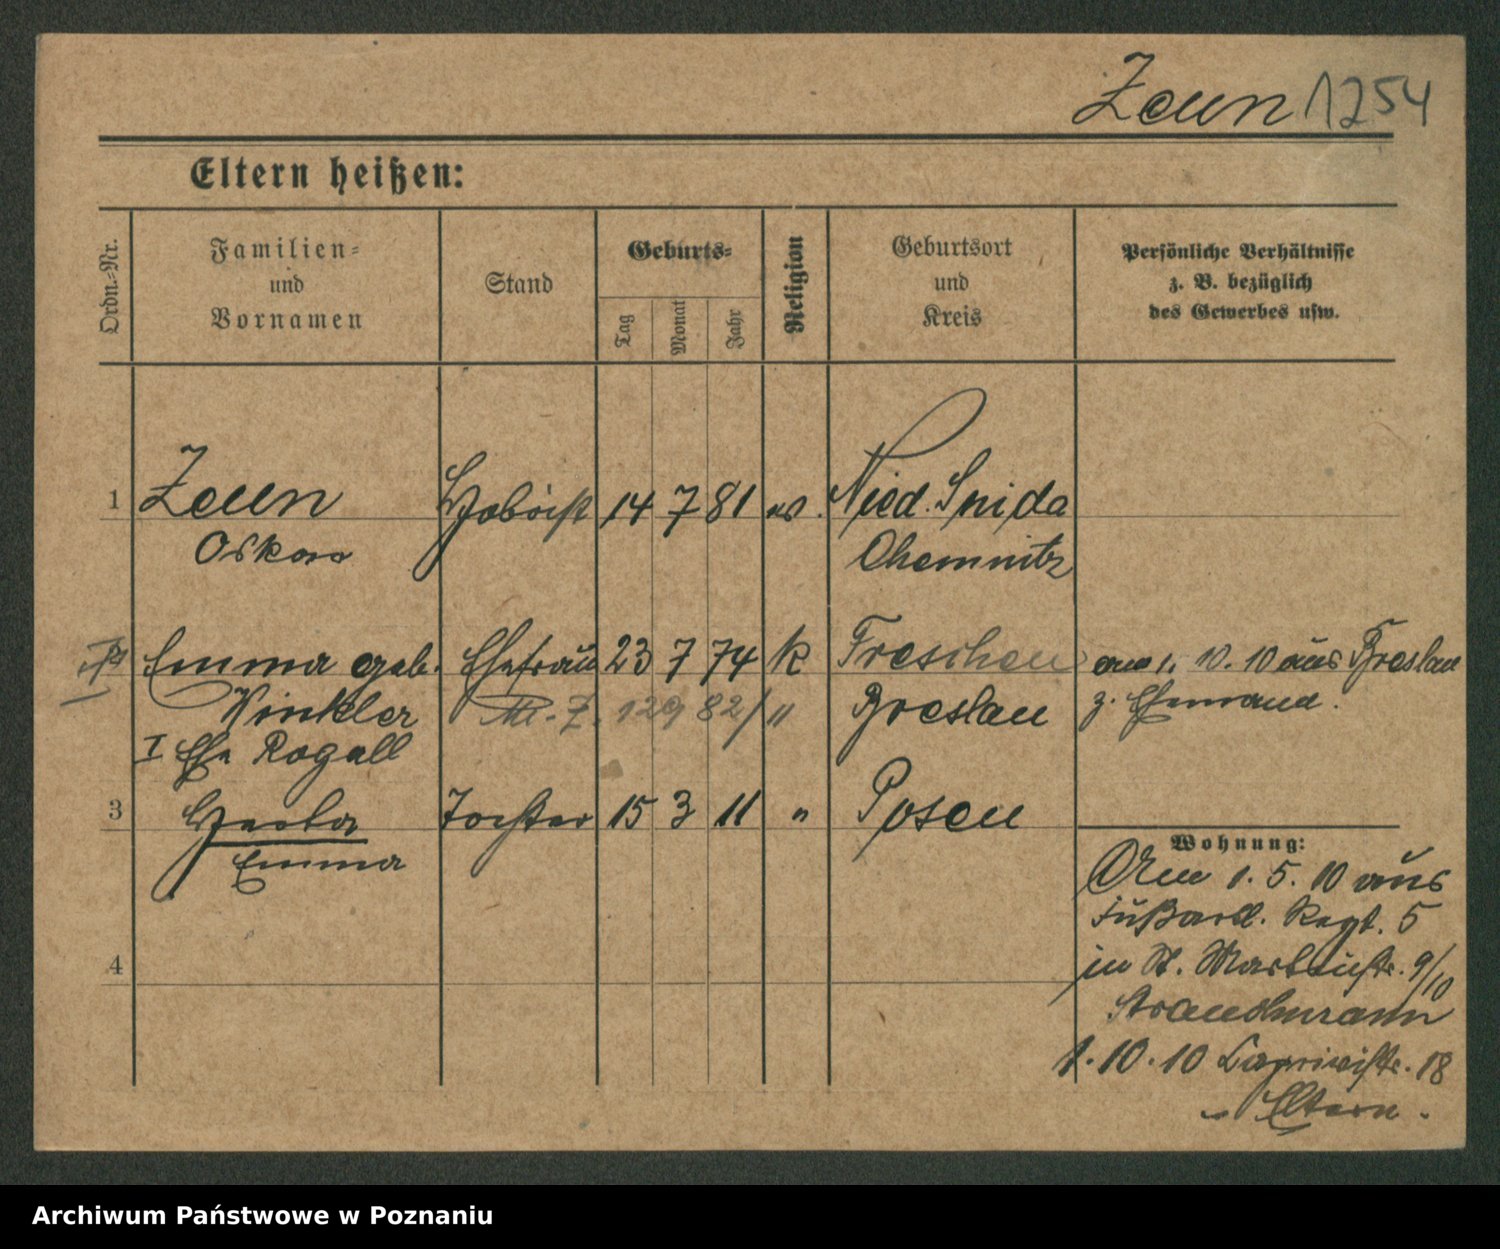 Zeun 1254
Eltern heißen:
Ordn.-Nr.
Familien-
und
Vornamen
Stand
Geburts-
Tag
Monat
Jahr
Religion
Geburtsort
und
Kreis
Persönliche Verhältnisse
z. B. bezüglich
des Gewerbes usw.
1 Zeun Hoboist 14 7 81 ev. Nied.
Oskar Chemnitz
Emma geb. Ehefrau 23 7 74 k Freschen am 1. 10. 10 aus Breslau
Winkler 129 82/ " Breslau z. Ehemand.
I Ehe Rogall
3 Herta Tochter 15 3 11 " Posen
Emma
Wohnung:
1. 5. 10 aus
Fußart. Regt. 5
in St. Martinstr. 9/10
4
1. 10. 10 Caprivistr. 18
- Eltern.
Archiwum Państwowe w Poznaniu